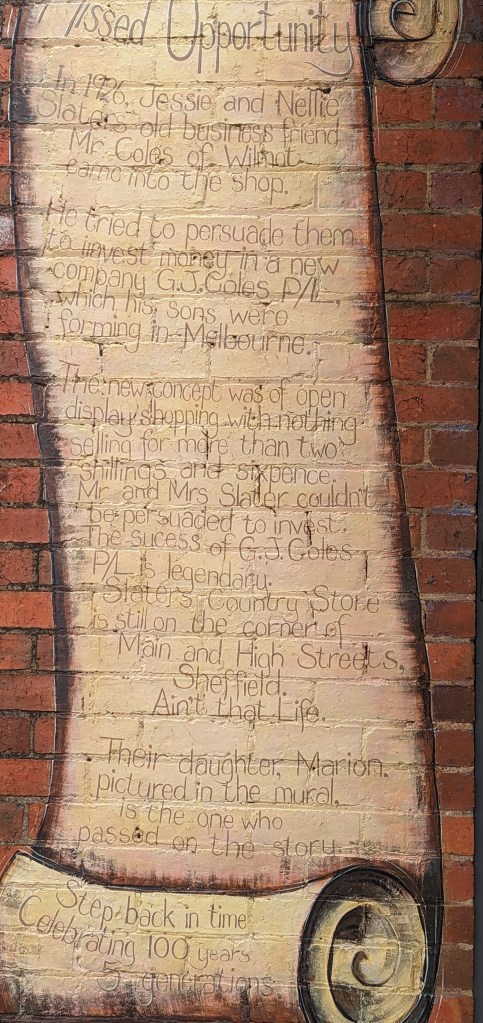 Missed Opportunity
In 1926, Jessie and Nellie
Slaters old business friend
Mr Coles of Wilmot
came into the shop.
He tried to persuade them
to invest money in a new
company G.J.Coles P/L,
which his sons were
forming in Melbourne.
The new concept was of open
display shopping with nothing
selling for more than two
shillings and sixpence.
Mr and Mrs Slater couldn't
be persuaded to invest.
The sucess of G.J.Coles
P/L is legendary.
Slaters Country Store
is still on the corner of
Main and High Streets,
Sheffield.
Ain't that Life.
Their daughter, Marion.
pictured in the mural,
is the one who
passed on the story
Step back in time
Celebrating 100 years
5 generations